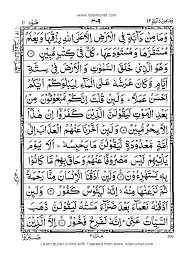 www.islamicnet.com
وَمَا مِنْ دَآبَّةٍ فِي الْاَرْضِ اِلَّا عَلَى اللّٰهِ رِزْقُهَا وَيَعْلَمُ
مُسْتَقَرَّهَا وَمُسْتَوْدَعَهَا كُلٌّ فِيْ كِتٰبٍ مُّبِيْنٍ
وَهُوَ الَّذِيْ خَلَقَ السَّمٰوٰتِ وَالْاَرْضَ فِيْ سِتَّةِ
اَيَّامٍ وَّكَانَ عَرْشُهٗ عَلَى الْمَآءِ لِيَبْلُوَكُمْ اَيُّكُمْ
اَحْسَنُ عَمَلًا وَلَئِنْ قُلْتَ اِنَّكُمْ مَّبْعُوْثُوْنَ مِنْۢ بَعْدِ
الْمَوْتِ لَيَقُوْلَنَّ الَّذِيْنَ كَفَرُوْٓا اِنْ هٰذَآ اِلَّا سِحْرٌ
مُّبِيْنٌ وَلَئِنْ اَخَّرْنَا عَنْهُمُ الْعَذَابَ اِلٰٓى اُمَّةٍ
مَّعْدُوْدَةٍ لَّيَقُوْلُنَّ مَا يَحْبِسُهٗ اَلَا يَوْمَ يَاْتِيْهِمْ
لَيْسَ مَصْرُوْفًا عَنْهُمْ وَحَاقَ بِهِمْ مَّا كَانُوْا
بِهٖ يَسْتَهْزِءُوْنَ وَلَئِنْ اَذَقْنَا الْاِنْسَانَ مِنَّا رَحْمَةً
ثُمَّ نَزَعْنٰهَا مِنْهُ اِنَّهٗ لَيَئُوْسٌ كَفُوْرٌ وَلَئِنْ
اَذَقْنٰهُ نَعْمَآءَ بَعْدَ ضَرَّآءَ مَسَّتْهُ لَيَقُوْلَنَّ ذَهَبَ
السَّيِّاٰتُ عَنِّيْ اِنَّهٗ لَفَرِحٌ فَخُوْرٌ اِلَّا الَّذِيْنَ
Learn quran online with Tajweed from www.islamicnet.com